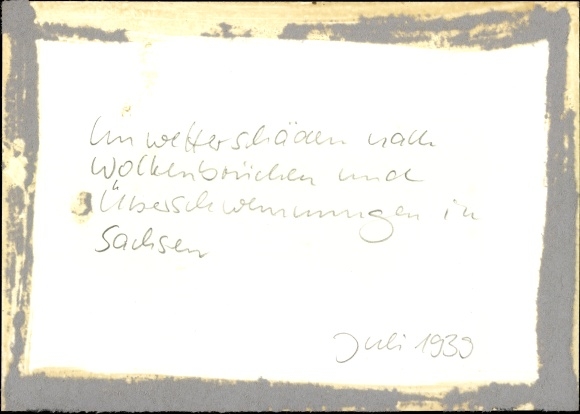 Unwetterschäden nach
Wolkenbrüchen und
Überschwemmungen in
Sachsen
Juli 1939